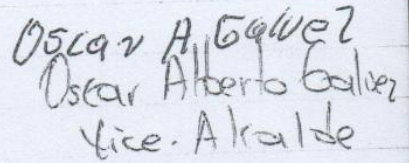 Oscar A Galvez
Oscar Alberto Galvez
Vice. Alcalde